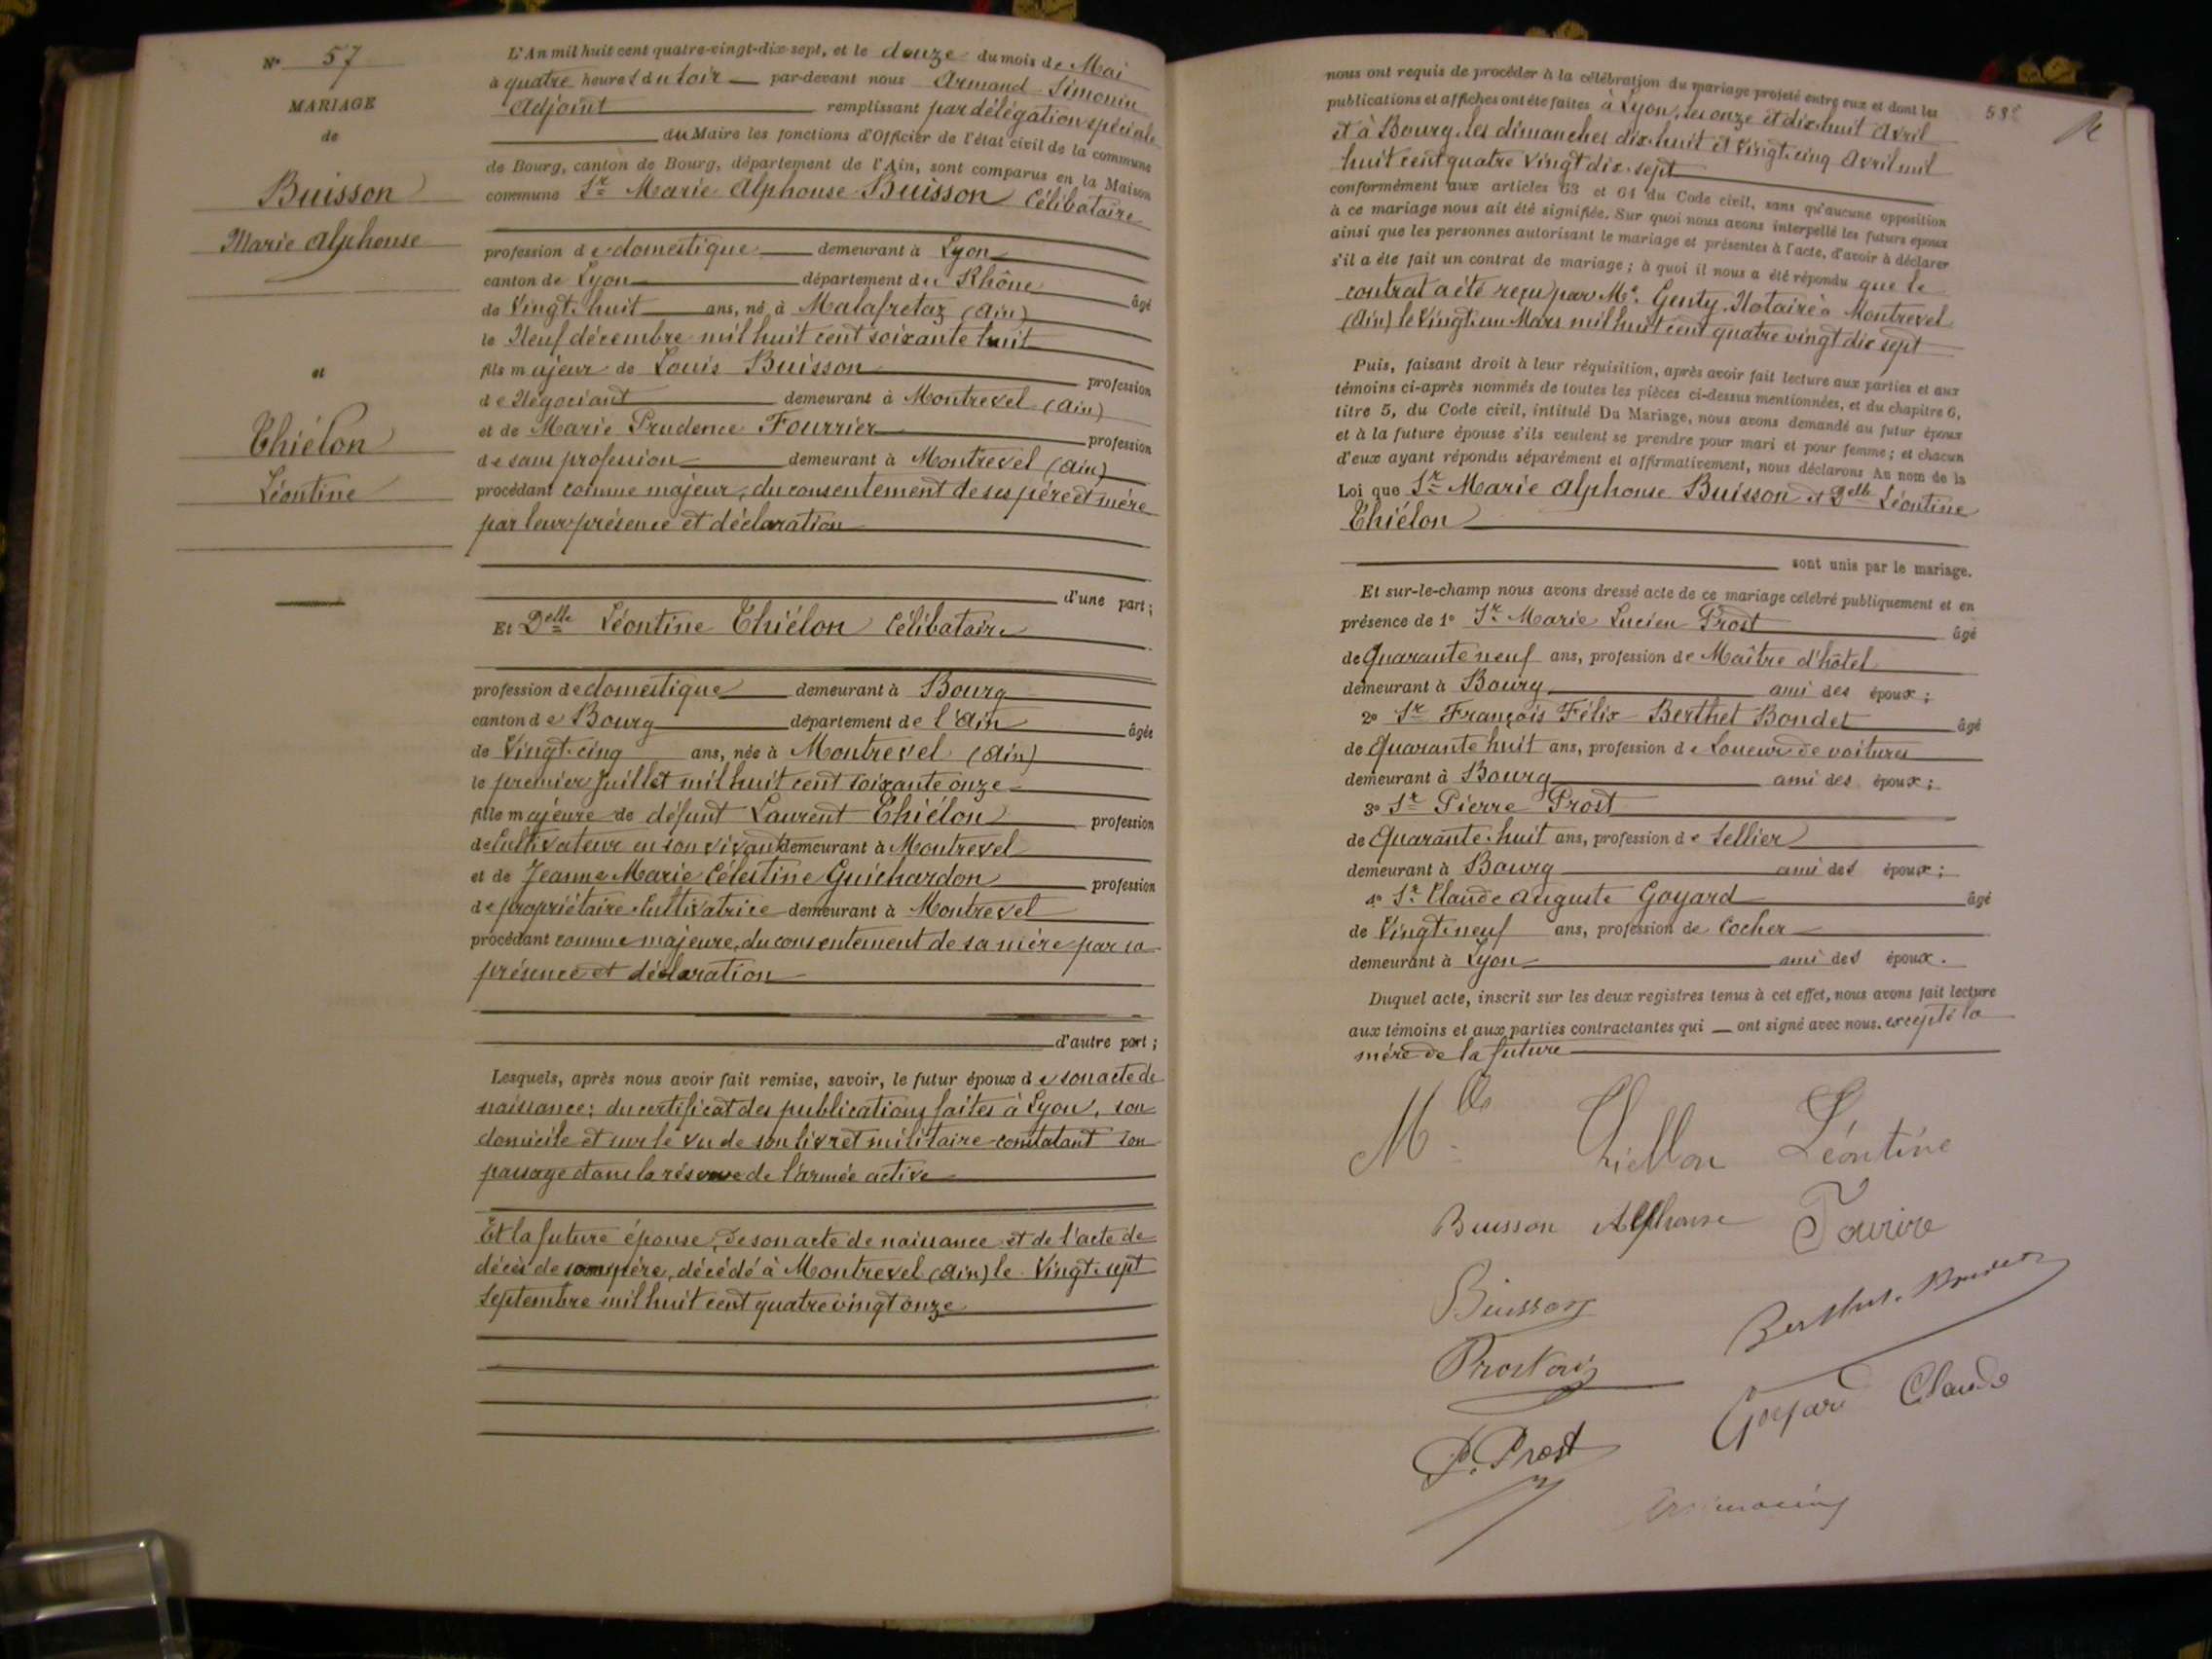 N° 57
MARIAGE
de
Buisson
Marie Alphonse
et
Thiélon
Léontine
L'An mil huit cent quatre-vingt-dix-sept, et le douze du mois de Mai
à quatre heures du soir par-devant nous Armand Simonin
Adjoint remplissant par délégation spéciale
du Maire les fonctions d'Officier de l'état civil de la commune
de Bourg, canton de Bourg, département de l'Ain, sont comparus en la Maison
commune Sr Marie Alphonse Buisson Célibataire
profession de domestique demeurant à Lyon
canton de Lyon département du Rhône âgé
de Vingt-huit ans, né à Malafretaz (Ain)
le Neuf décembre mil huit cent soixante huit
fils majeur de Louis Buisson profession
de Négociant demeurant à Montrevel (Ain)
et de Marie Prudence Fourrier profession
de sans profession demeurant à Montrevel (Ain)
procédant comme majeur, du consentement de ses père et mère
par leur présence et déclaration
d'une part;
Et Delle Léontine Thiélon Célibataire
profession de domestique demeurant à Bourg
canton de Bourg département de l'Ain âgée
de Vingt-cinq ans, née à Montrevel (Ain)
le premier Juillet mil huit cent soixante onze
fille majeure de défunt Laurent Thiélon profession
de Cultivateur en son vivant demeurant à Montrevel
et de Jeanne Marie Célestine Guichardon profession
de propriétaire Cultivatrice demeurant à Montrevel
procédant comme majeure, du consentement de sa mère par sa
présence et déclaration
d'autre part;
Lesquels, après nous avoir fait remise, savoir, le futur époux de son acte de
naissance; du certificat des publications faites à Lyon, son
domicile et sur le vu de son livret militaire constatant son
passage dans la réserve de l'armée active
Et la future épouse, de son acte de naissance et de l'acte de
décès de son père, décédé à Montrevel (Ain) le Vingt-sept
Septembre mil huit cent quatre vingt onze
nous ont requis de procéder à la célébration du mariage projeté entre eux et dont les
publications et affiches ont été faites à Lyon, les onze et dix-huit Avril
et à Bourg, les dimanches dix-huit et vingt-cinq Avril mil
huit cent quatre vingt dix-sept
conformément aux articles 63 et 64 du Code civil, sans qu'aucune opposition
à ce mariage nous ait été signifiée. Sur quoi nous avons interpellé les futurs époux
ainsi que les personnes autorisant le mariage et présentes à l'acte, d'avoir à déclarer
s'il a été fait un contrat de mariage; à quoi il nous a été répondu que le
contrat a été reçu par Me. Genty, Notaire à Montrevel
(Ain) le Vingt-un Mars mil huit cent quatre vingt dix sept
Puis, faisant droit à leur réquisition, après avoir fait lecture aux parties et aux
témoins ci-après nommés de toutes les pièces ci-dessus mentionnées, et du chapitre 6,
titre 5, du Code civil, intitulé Du Mariage, nous avons demandé au futur époux
et à la future épouse s'ils veulent se prendre pour mari et pour femme; et chacun
d'eux ayant répondu séparément et affirmativement, nous déclarons Au nom de la
Loi que Sr Marie Alphonse Buisson et Delle Léontine
Thiélon
sont unis par le mariage.
Et sur-le-champ nous avons dressé acte de ce mariage célébré publiquement et en
présence de 1° Sr Marie Lucien Prost âgé
de Quarante neuf ans, profession de Maître d'hôtel
demeurant à Bourg ami des époux;
2° Sr François Félix Berthet Bondet âgé
de Quarante huit ans, profession de Loueur de voitures
demeurant à Bourg ami des époux;
3° Sr Pierre Prost
de Quarante-huit ans, profession de Sellier
demeurant à Bourg ami des époux;
4° Sr Claude Auguste Goyard âgé
de Vingt-neuf ans, profession de Cocher
demeurant à Lyon ami des époux.
Duquel acte, inscrit sur les deux registres tenus à cet effet, nous avons fait lecture
aux témoins et aux parties contractantes qui ont signé avec nous, excepté la
mère de la future
Mlle Thiellon Léontine
Buisson Alphonse
Buisson
P. Prost
Goyard Claude